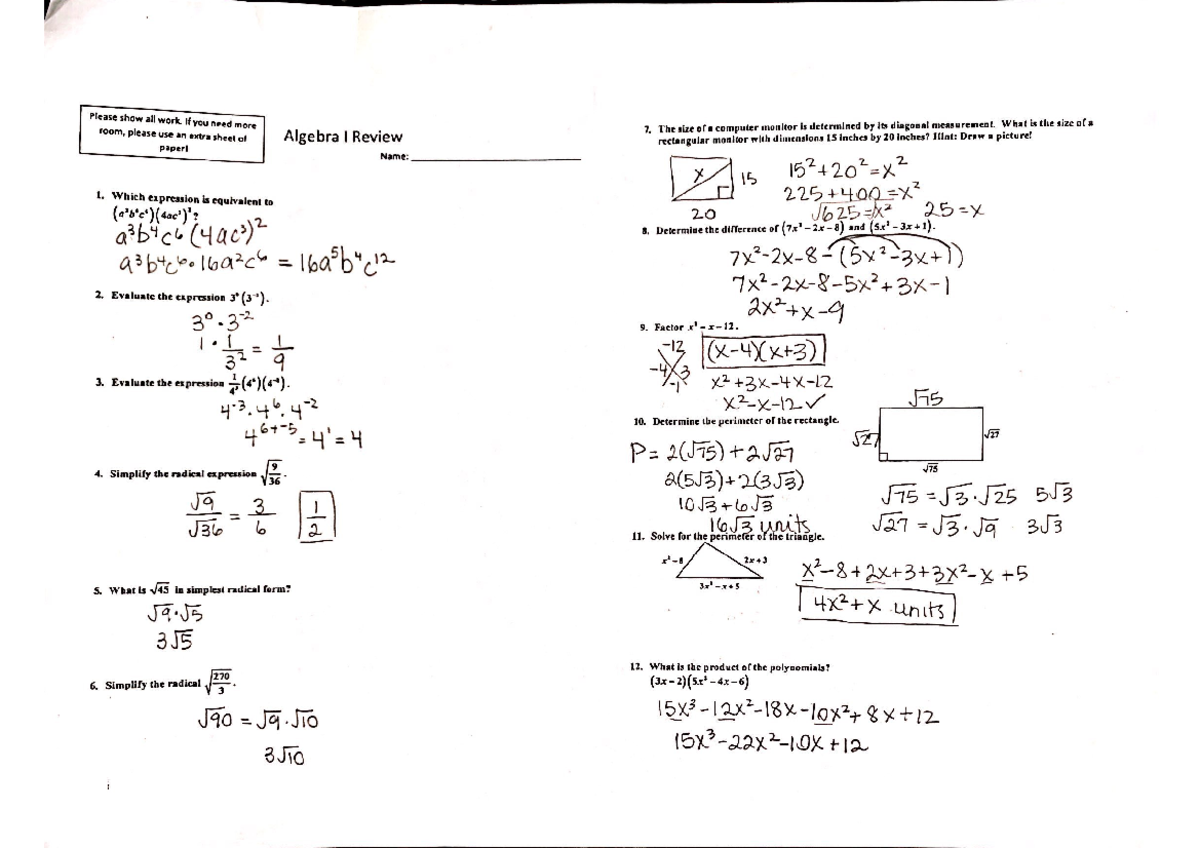 Please show all work. If you need more
room, please use an extra sheet of
paper!
Algebra I Review
Name:
1. Which expression is equivalent to
(a³b⁴c⁶)(4ac³)²?
a³b⁴c⁶(4ac³)²
a³b⁴c⁶·16a²c⁶ = 16a⁵b⁴c¹²
2. Evaluate the expression 3⁰(3⁻²).
3⁰·3⁻²
1·1/3² = 1/9
3. Evaluate the expression
4⁻³·4⁶·4⁻²
4⁶⁺⁻⁵ = 4¹ = 4
4. Simplify the radical expression √(9/36).
√9/√36 = 3/6 1/2
5. What is √45 in simplest radical form?
√9·√5
3√5
6. Simplify the radical √(270/3).
√90 = √9·√10
3√10
7. The size of a computer monitor is determined by its diagonal measurement. What is the size of a
rectangular monitor with dimensions 15 inches by 20 inches? Hint: Draw a picture!
x 15
20
15²+20²=x²
225+400=x²
√625=√x² 25=x
8. Determine the difference of (7x²-2x-8) and (5x²-3x+1).
7x²-2x-8-(5x²-3x+1)
7x²-2x-8-5x²+3x-1
2x²+x-9
9. Factor x²-x-12.
-12
-4 3
-1
(x-4)(x+3)
x²+3x-4x-12
x²-x-12✓
10. Determine the perimeter of the rectangle.
√75
√27 √27
√75
P = 2(√75)+2√27
2(5√3)+2(3√3)
10√3+6√3
16√3 units
√75 = √3·√25 5√3
√27 = √3·√9 3√3
11. Solve for the perimeter of the triangle.
x²-8 2x+3
3x²-x+5
x²-8+2x+3+3x²-x+5
4x²+x units
12. What is the product of the polynomials?
(3x-2)(5x²-4x-6)
15x³-12x²-18x-10x²+8x+12
15x³-22x²-10x+12